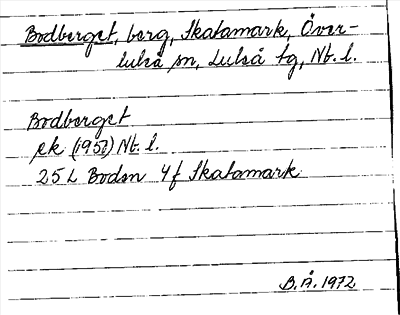 Bodberget, berg, Skatamark, Över-
luleå sn, Luleå tg, Nb. l.
Bodberget
ek (1951) Nb. l.
25 L Boden 4f Skatamark
B.Å. 1972